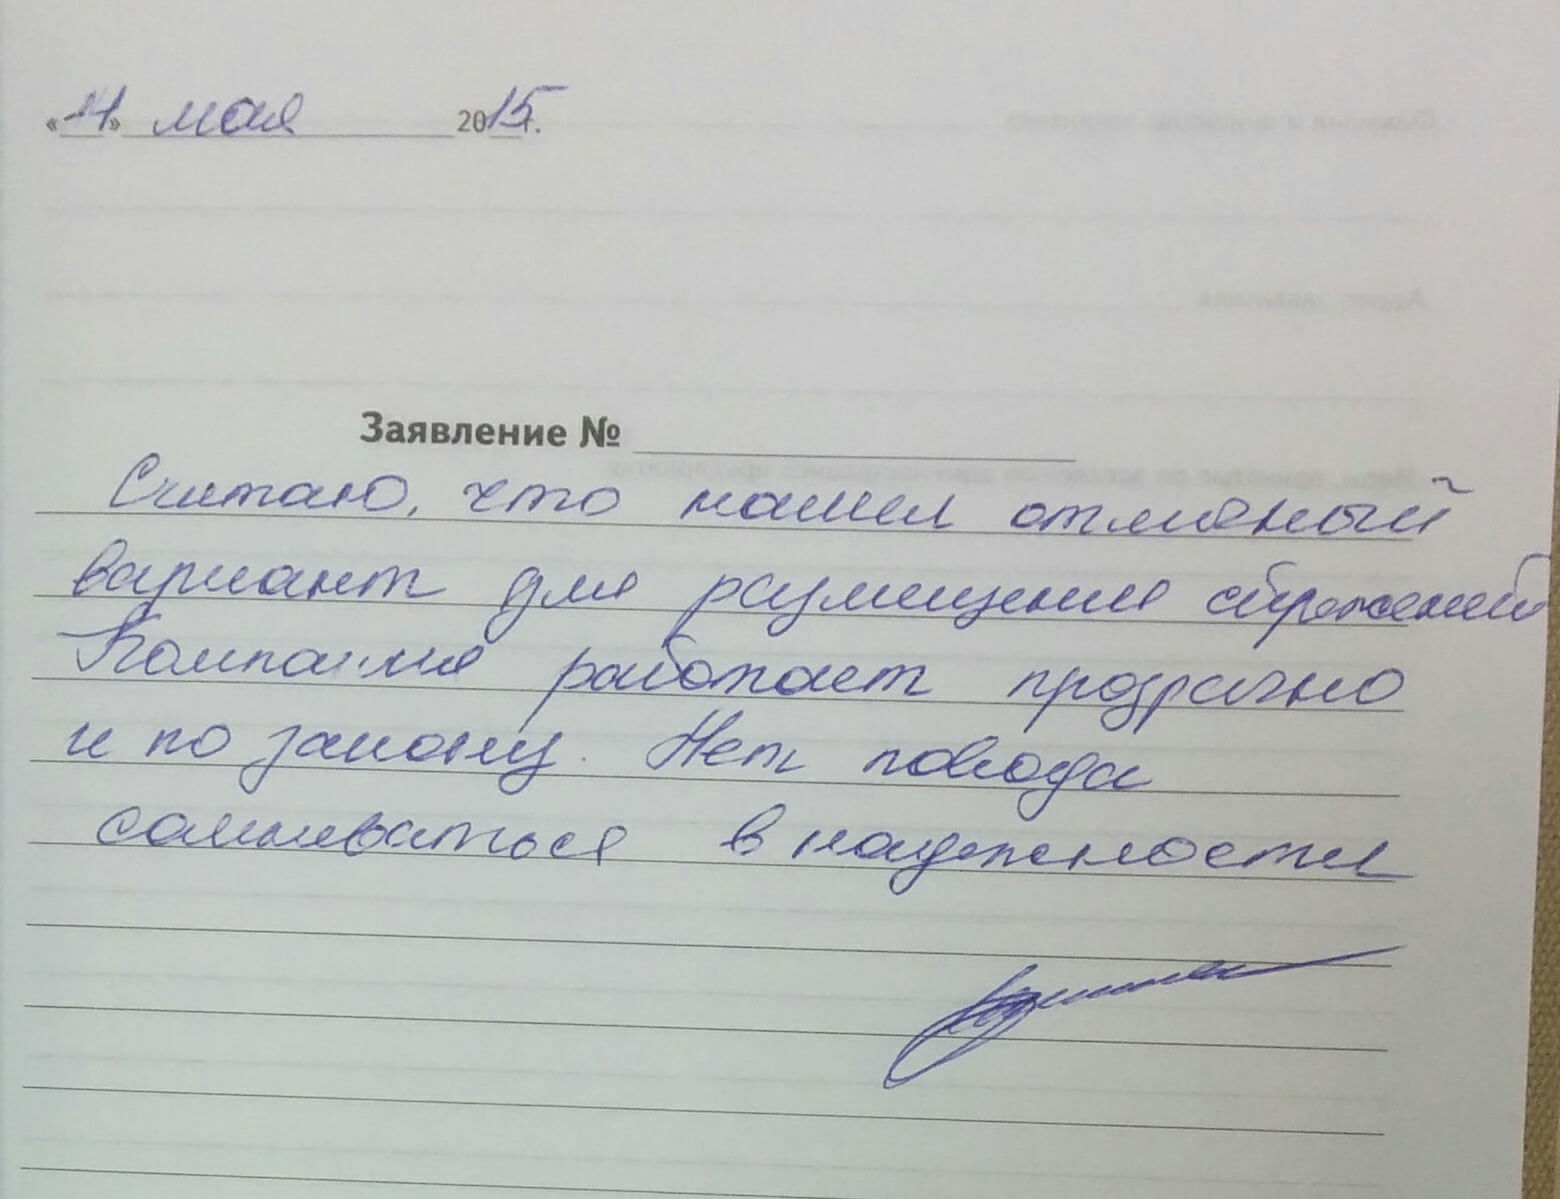 «11» мая 2015г.
Заявление №
Считаю, что нашел отменный
вариант для размещения сбережений
Компания работает прозрачно
и по закону. Нет повода
сомневаться в надежности